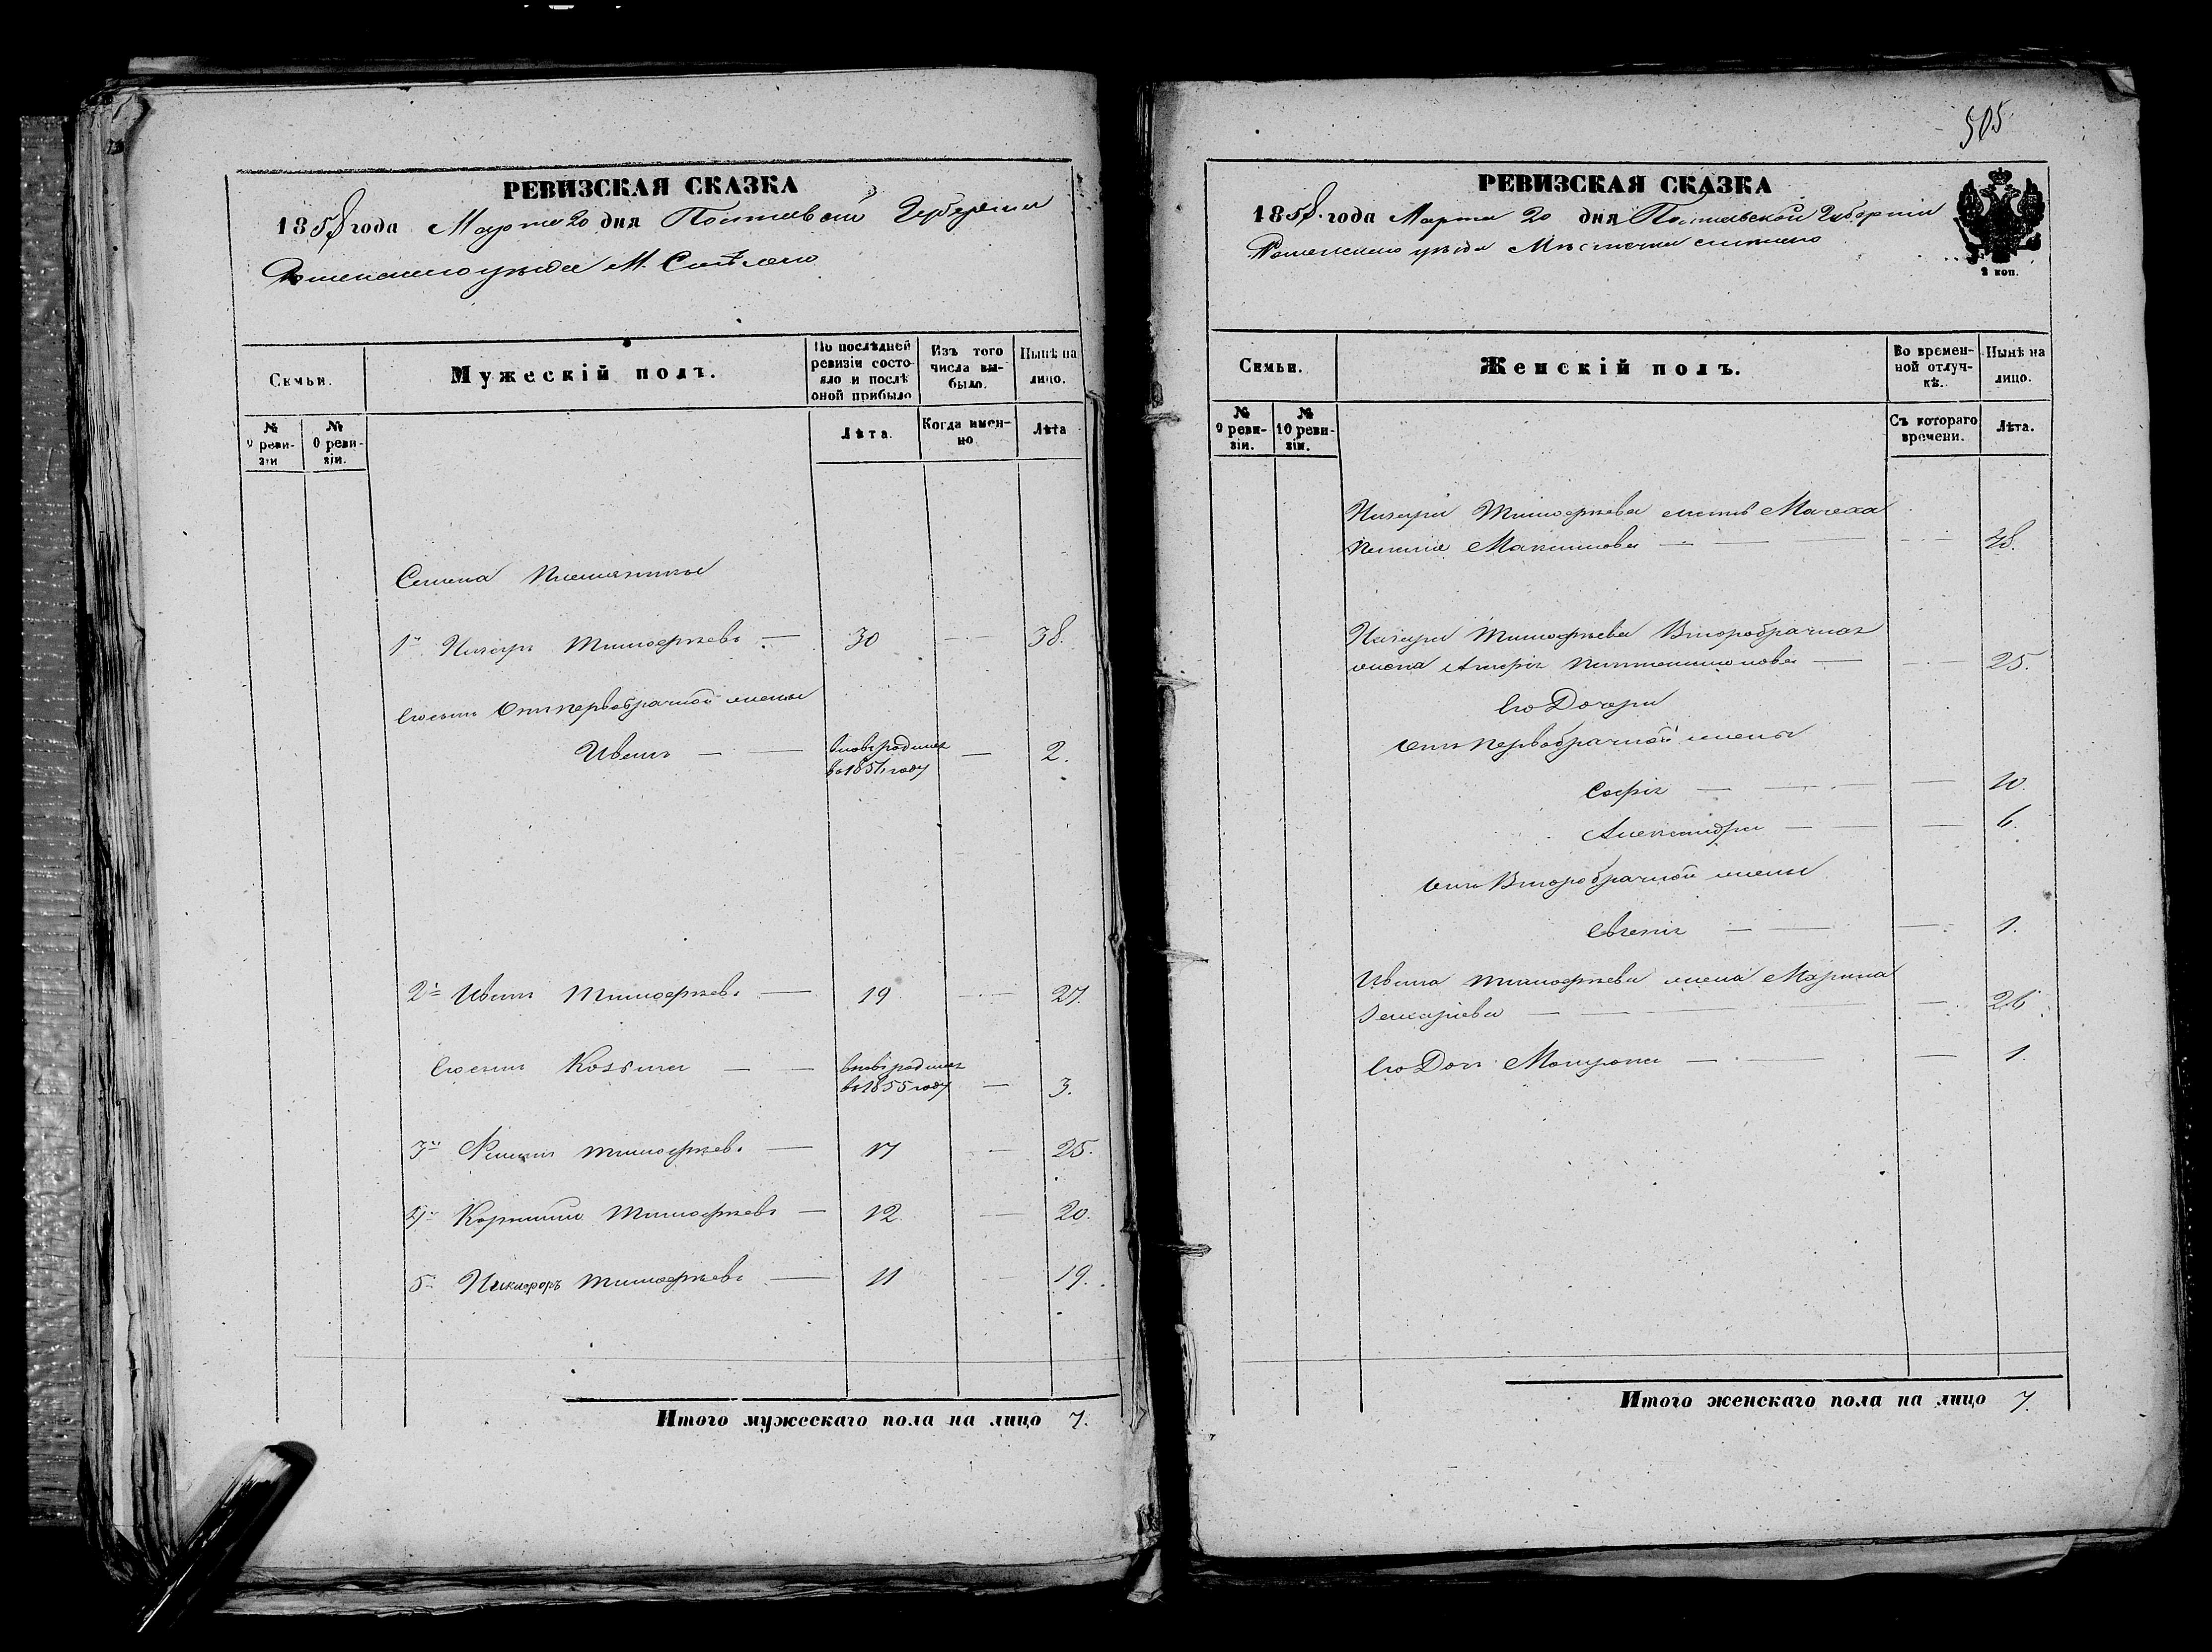 РЕВИЗСКАЯ СКАЗКА
1858 года Марта 20 дня Полтавской Губернiи
Роменскаго уѣзда М. Смѣлаго
Семьи.
Мужескiй полъ.
По послѣдней ревизiи состояло и послѣ оной прибыло
Изъ того числа выбыло.
Нынѣ на лицо.
№ 9 ревизiи
№ 0 ревизiи.
Лѣта.
Когда именно.
Лѣта
Семена Племянники
1й Назаръ Тимофѣевъ — 30 — 38.
Его сынъ Отъ первобрачной жены
Иванъ — вновь родился — 2.
году
2й Иванъ Тимофѣевъ — 19 — 27.
Его сынъ Козьма — вновь родился
въ 1855 году — 3.
3й Тимофѣевъ — 17 — 25.
4й Корнилiй Тимофѣевъ — 12. — 20.
5й Никифоръ Тимофѣевъ — 11 — 19.
Итого мужескаго пола на лицо 7.
505
РЕВИЗСКАЯ СКАЗКА
1858. года Марта 20 дня Полтавской Губернiи
Роменскаго уѣзда Мѣстечка Смѣлаго
2 коп.
Семьи.
Женскiй полъ.
Во временной отлучкѣ.
Нынѣ на лицо.
№ 9 ревизiи.
№ 10 ревизiи.
Съ котораго времени.
Лѣта.
Назара Тимофѣева Мачеха
Максимова — 48.
Назара Тимофѣева Второбрачная
жена — 25.
Его Дочери
Отъ первобрачной жены
Софiя — 10.
Александра — 6.
Отъ Второбрачной жены
Евгенiя — 1.
Ивана Тимофѣева жена Марина
Захарiева — 26.
Его Дочь — 1.
Итого женскаго пола на лицо 7.